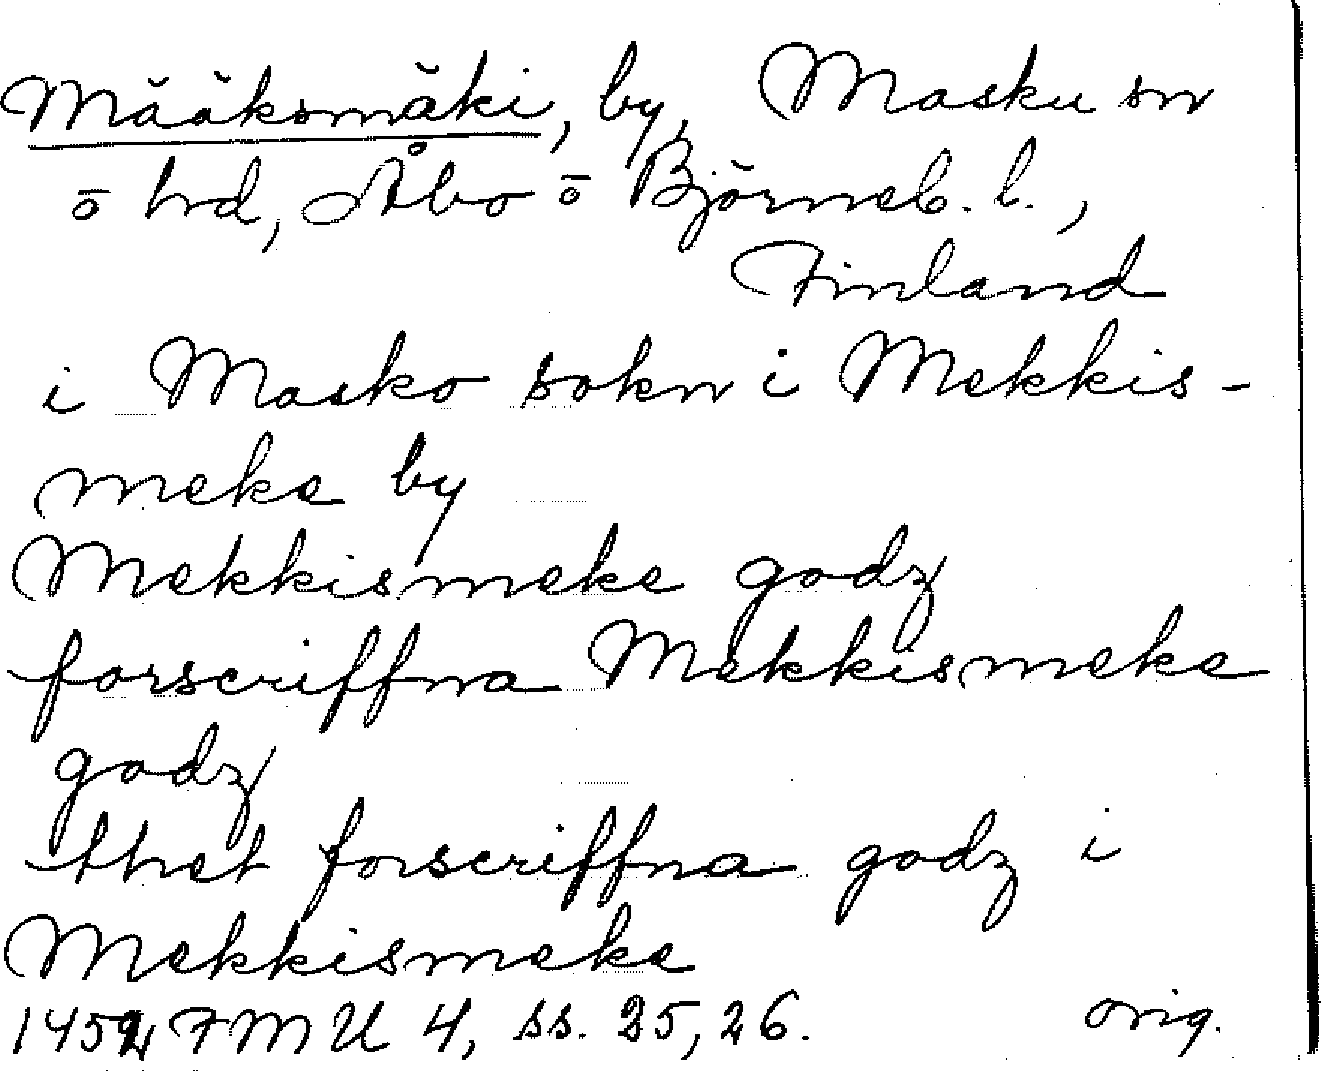 Määksmäki, by, Masku sn
ō hd, Åbo ō Björneb. l.,
Finland
i Masko sokn i Mekkis-
meke by
Mekkismeke godz
forscriffna Mekkismeke
godz
thet forscriffna godz i
Mekkismeke
1452 FMU 4, ss. 25, 26. orig.